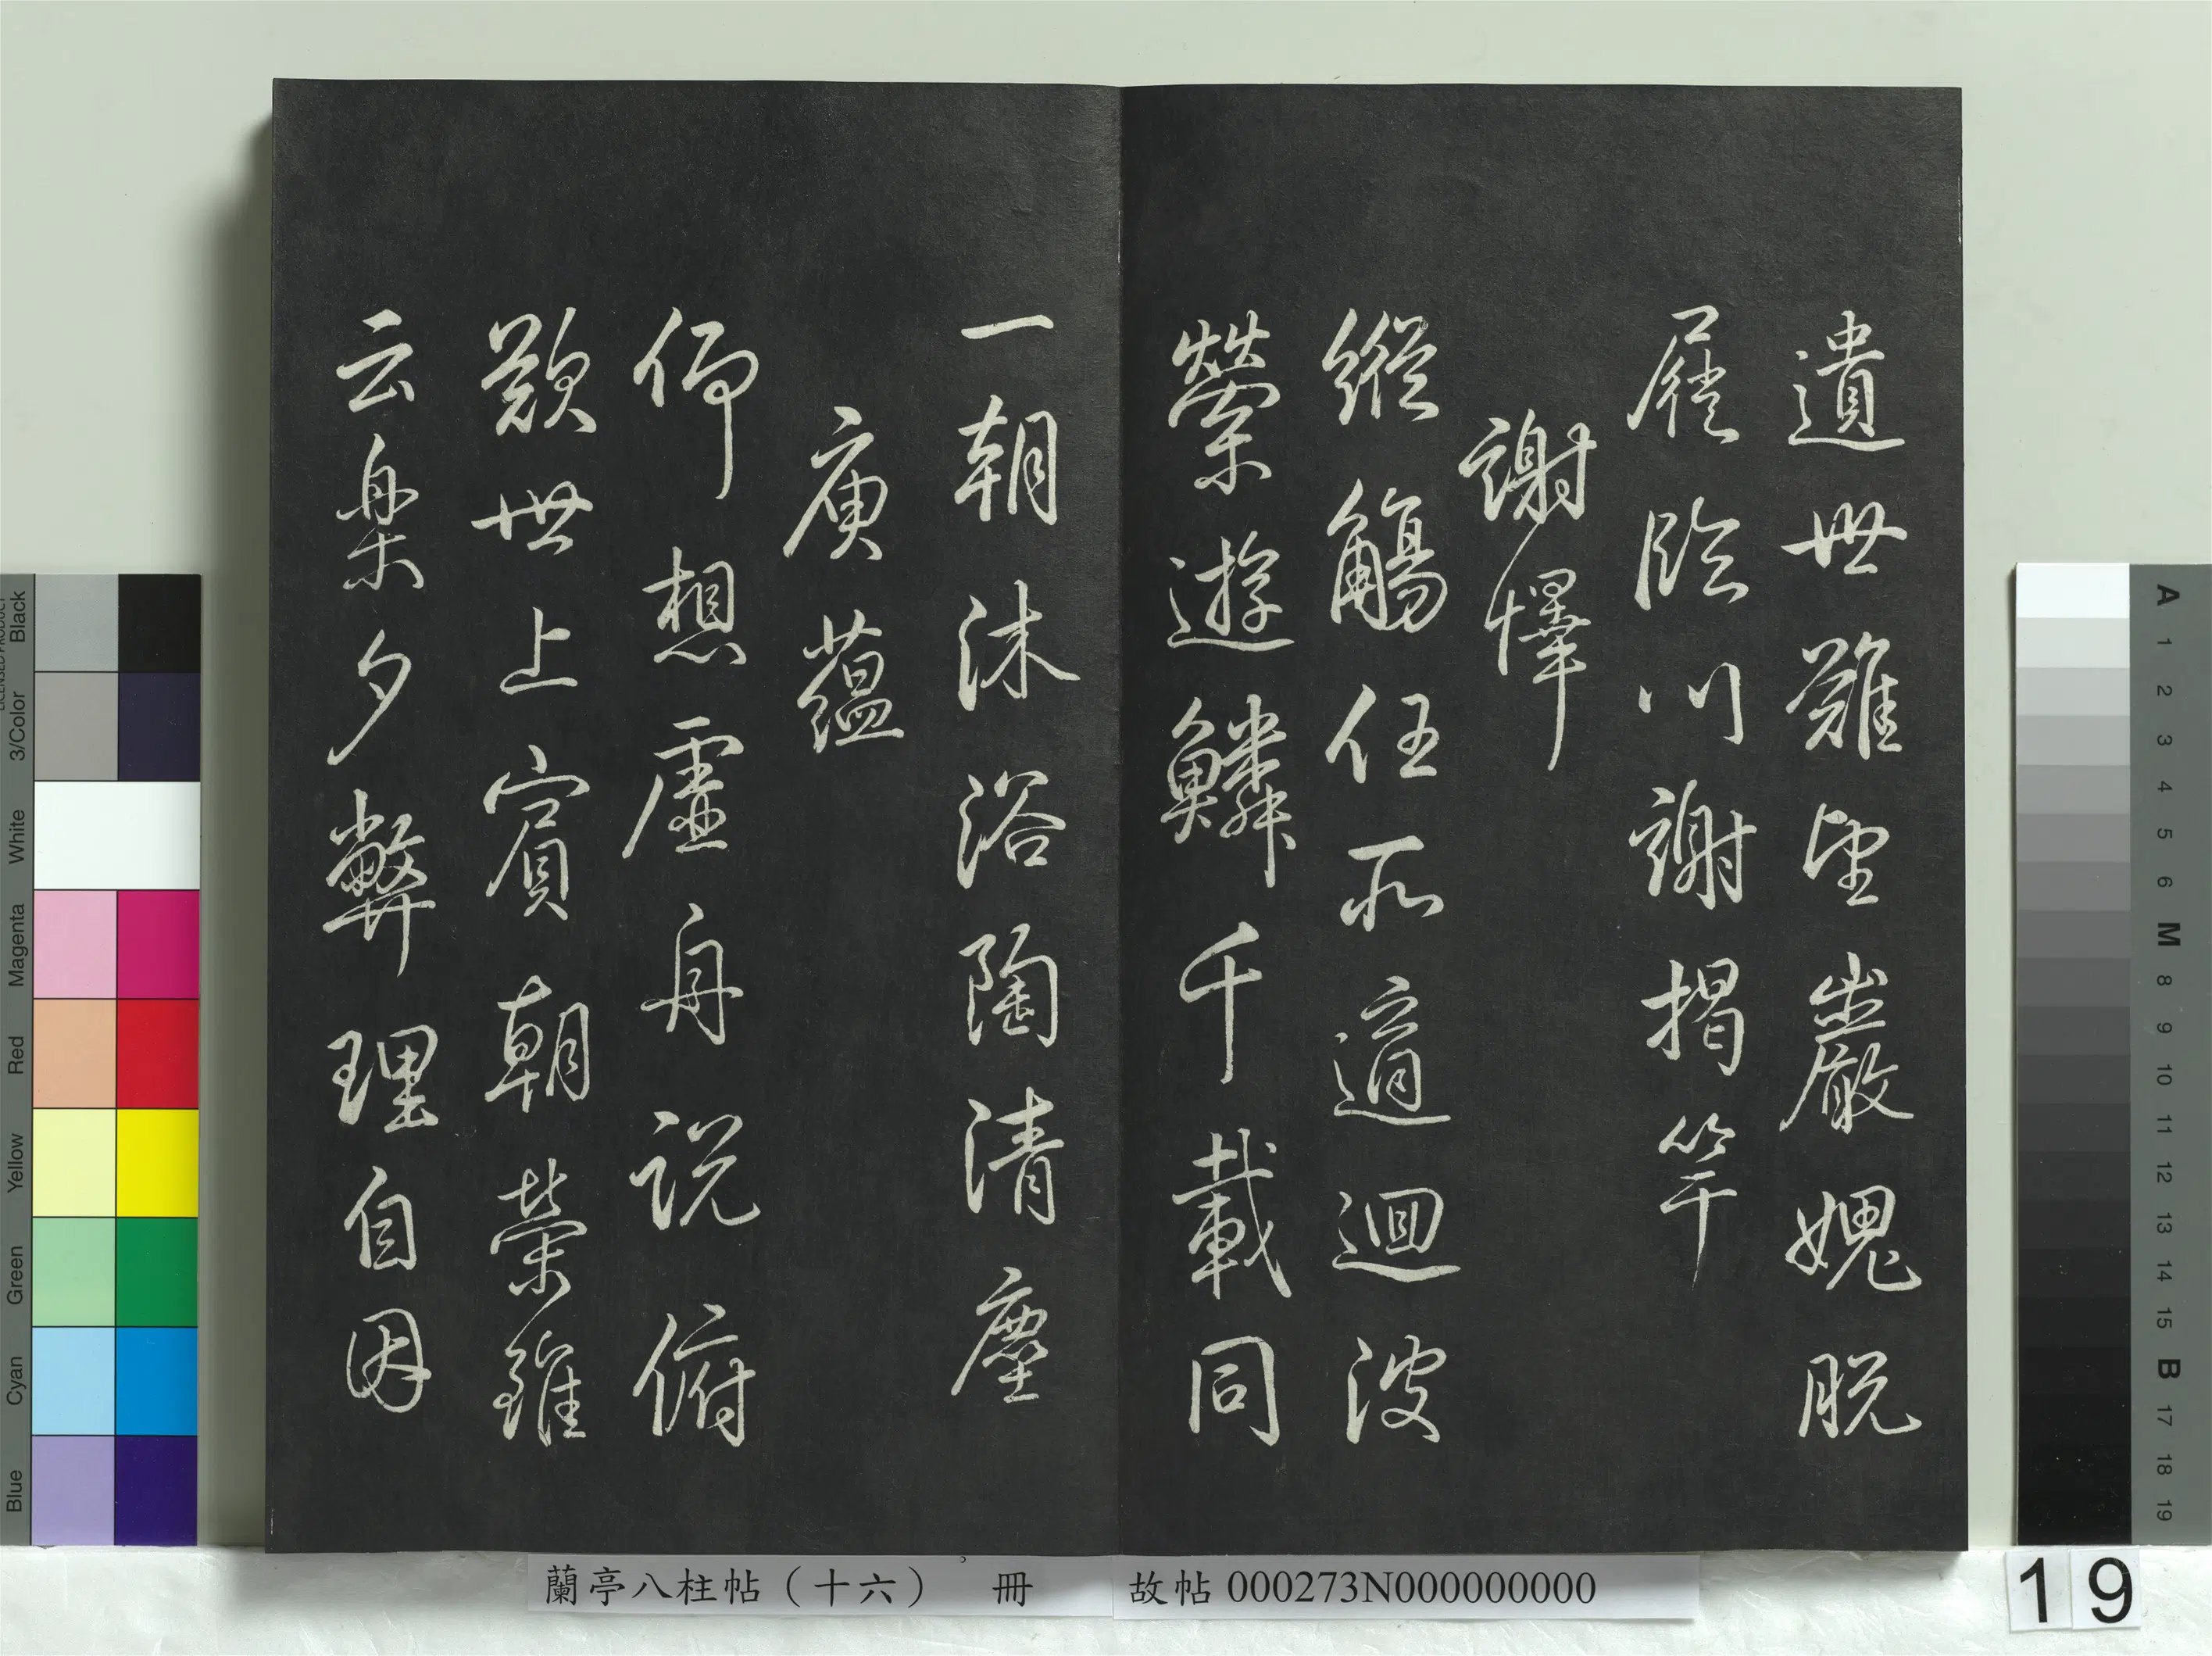 遺世難望巖媿脫
屣臨川謝揭竿
謝懌
縱觴任所適迴波
縈遊鱗千載同
一朝沐浴陶清塵
庾蘊
仰想虛舟說俯
歎世上賓朝榮雖
云樂夕弊理自因
蘭亭八柱帖（十六） 冊
故帖 000273N000000000
19
Black
3/Color
White
Magenta
Red
Yellow
Green
Cyan
Blue
A
1
2
3
4
5
6
M
8
9
10
11
12
13
14
15
B
17
18
19